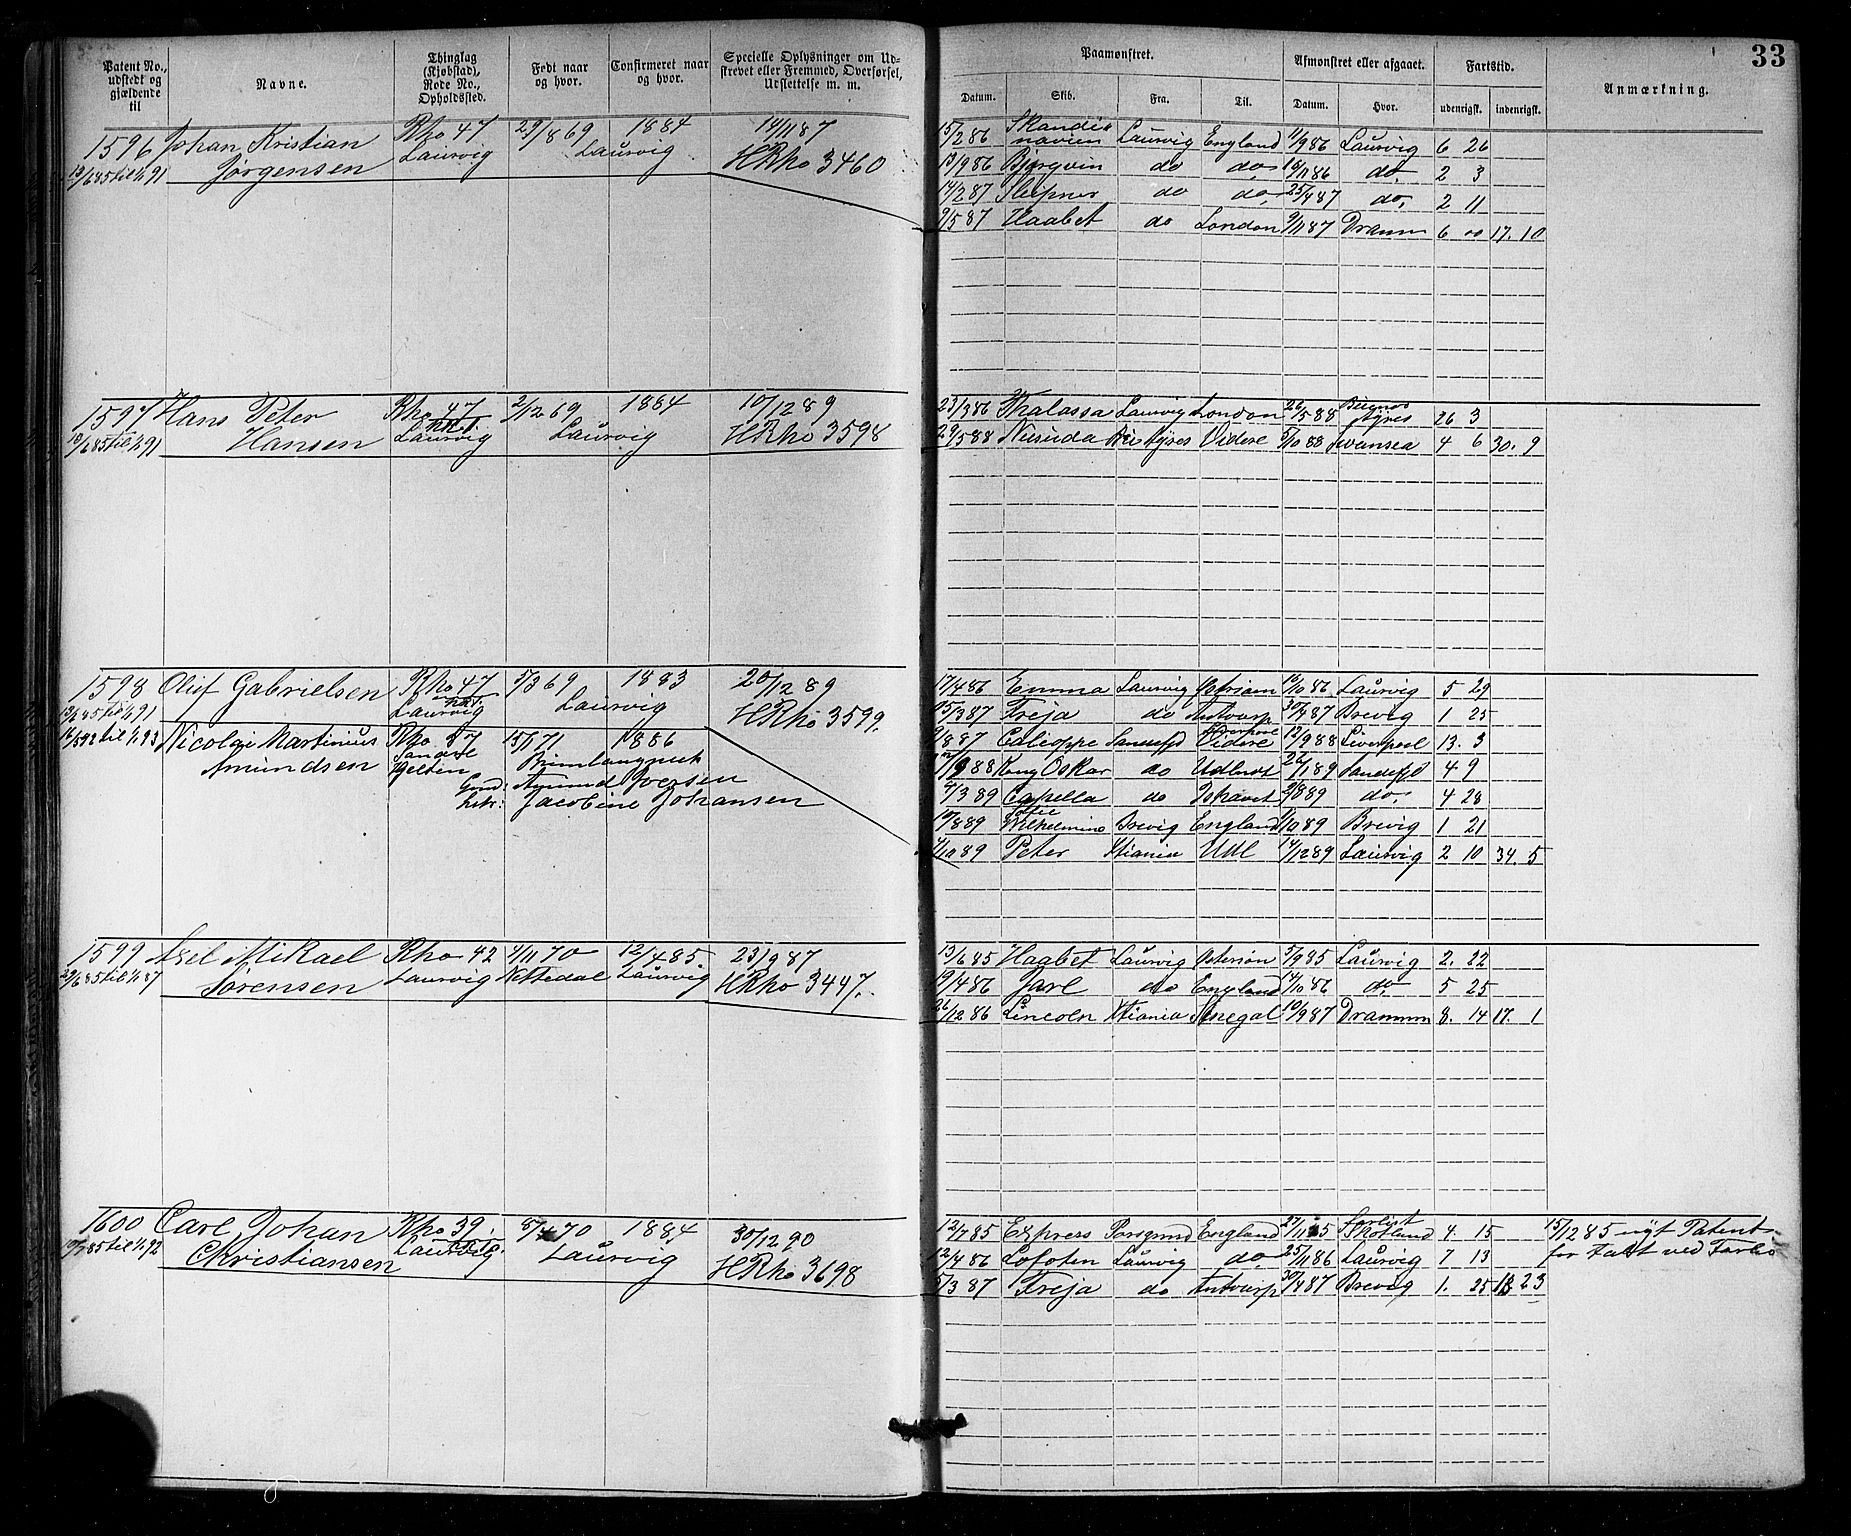 33
Patent No., udstedt og gjældende til
Navne.
Thinglag (Kjøbstad), Rode No., Opholdssted.
Født naar og hvor.
Confirmeret naar og hvor.
Specielle Oplysninger om Udskrevet eller Fremmed, Overførsel, Udslettelse m. m.
Paamønstret.
Afmønstret eller afgaaet.
Fartstid.
Anmærkning.
Datum. Skib. Fra. Til. Datum. Hvor. udenrigsk. indenrigsk.
1596 Johan Kristian Rho 47 29/8 69 1884 14/11 87
13/6 85 til 1/1 91 Jørgensen Laurvig Laurvig HRho 3460
15/2 86 Skandinavien Laurvig England 11/9 86 Laurvig 6 26
13/9 86 Bjørgvin do do 16/11 86 do. 2 3
14/2 87 Sleipner do do. 25/4 87 do. 2 11
9/5 87 Haabet do London 9/11 87 Dramm 6 00 17. 10
1597 Hans Peter Rho 47 2/12 69 1884 10/12 89
13/6 85 til 1/1 91 Hansen Laurvig Laurvig HRho 3598
23/3 86 Thalassa Laurvig London 26/5 88 Buenos Ayres 26 3
29/5 88 Ayres Videre 5/10 88 Swansea 4 6 30. 9
1598 Oluf Gabrielsen Rho 47 5/3 69 1883 20/12 89
13/6 85 til 1/1 91 Laurvig Laurvig HRho 3599.
16/5 92 til 1/1 93 Nicolai Martinius Rho 15/1 71 1886
Amundsen
Amund Iversen
Jacobine Johansen
17/4 86 Emma Laurvig 19/10 86 Laurvig 5 29
5/3 87 Freja do Antwerp 30/4 87 Brevig 1 25
9/8 87 Calioppe Sandefjd Videre 12/9 88 Liverpool 13. 3
88 Kong Oskar do Udlandt 89 Sandefjd 4 9
3 89 Capella do Ishavet 2/8 89 do. 4 28
10/8 89 Wilhelmine Brevig England 1/10 89 Brevig 1 21
10 89 Peter Xtiania Udl 14/12 89 Laurvig 2 10 34. 5
1599 Axel Mikael Rho 42 4/11 70 12/4 85 23/9 87
29/6 85 til 1/1 87 Sørensen Laurvig Nattedal Laurvig HRho 3447.
13/6 85 Haabet Laurvig 5/9 85 Laurvig 2. 22
19/4 86 Jarl do England 14/10 86 do 5 25
26/12 86 Lincoln Xtiania Senegal 10/9 87 Drammn 8. 14 17. 1
1600 Carl Johan Rho 39. 8/4 70 1884 30/12 90
85 til 1/1 92 Christiansen Laurvig Laurvig HRho 3698
12/7 85 Express Porsgrund England 27/11 85 Forlist Skotland 4 15 15/12 85 nyt Patent
12/4 86 Lofoten Laurvig do 25/11 86 Laurvig 7 13 for Tabt ved Forlis
5/3 87 Freja do Antwerp 30/4 87 Brevig 1. 25 13 23